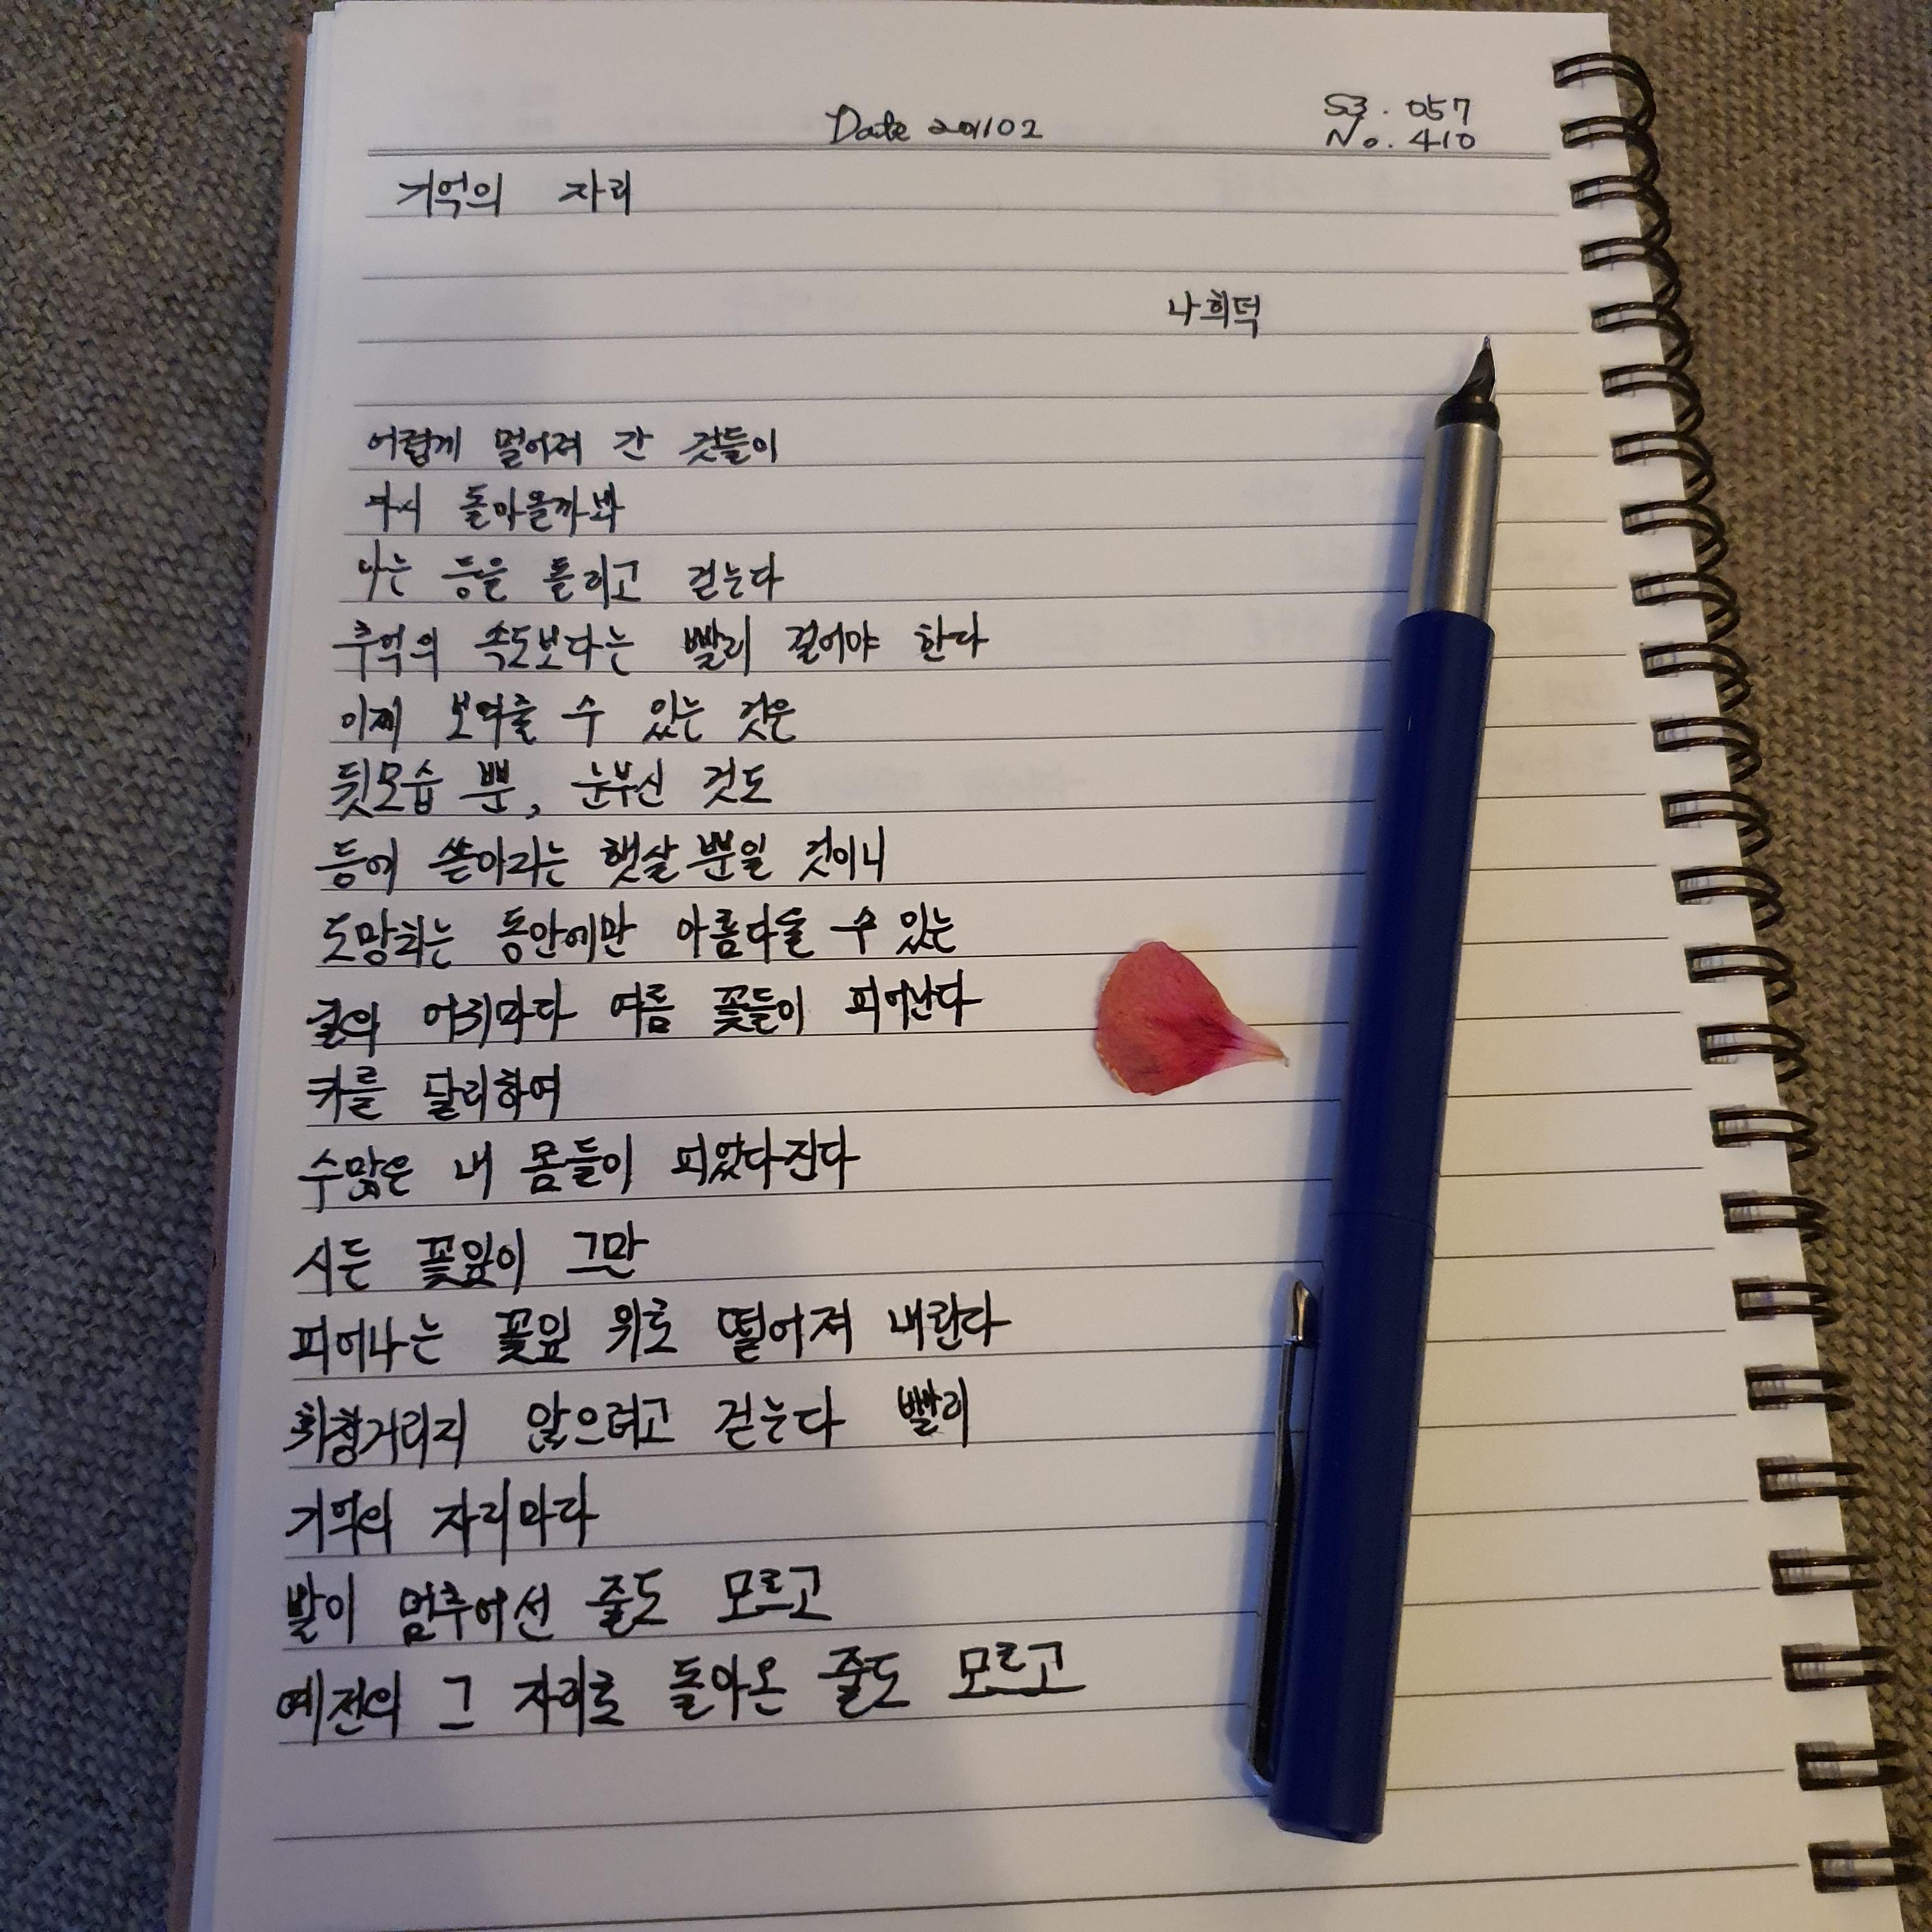 Date 201102
S3. 057
No. 410
기억의 자리
나희덕
어렵게 멀어져 간 것들이
다시 돌아올까봐
나는 등을 돌리고 걷는다
추억의 속도보다는 빨리 걸어야 한다
이제 보여줄 수 있는 것은
뒷모습 뿐, 눈부신 것도
등에 쏟아지는 햇살 뿐일 것이니
도망치는 동안에만 아름다울 수 있는
길의 어귀마다 여름 꽃들이 피어난다
키를 달리하여
수많은 내 몸들이 피었다진다
시든 꽃잎이 그만
피어나는 꽃잎 위로 떨어져 내린다
휘청거리지 않으려고 걷는다 빨리
기억의 자리마다
발이 멈추어선 줄도 모르고
예전의 그 자리로 돌아온 줄도 모르고